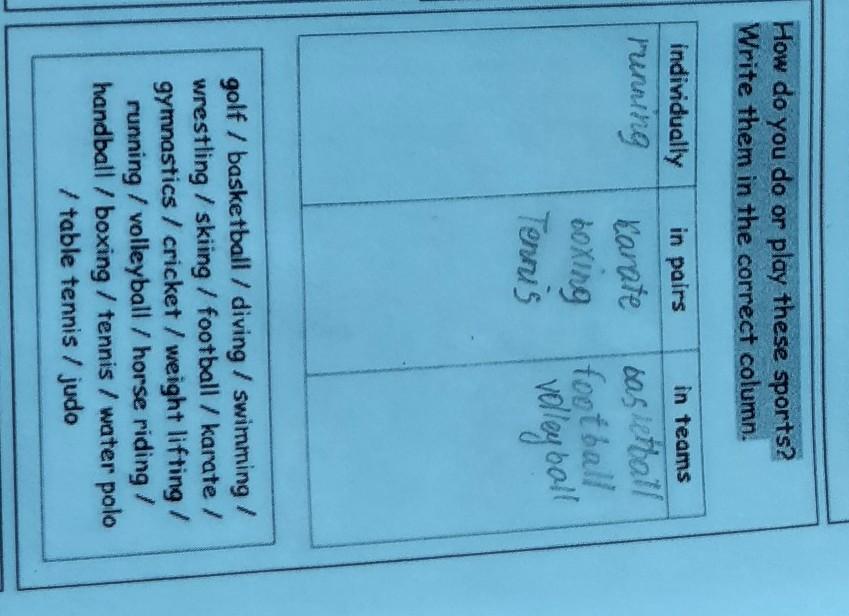 How do you do or play these sports?
Write them in the correct column.
individually in pairs in teams
running karate basketball
boxing football
Tennis volleyball
golf / basketball / diving / swimming /
wrestling / skiing / football / karate /
gymnastics / cricket / weight lifting /
running / volleyball / horse riding /
handball / boxing / tennis / water polo
/ table tennis / judo